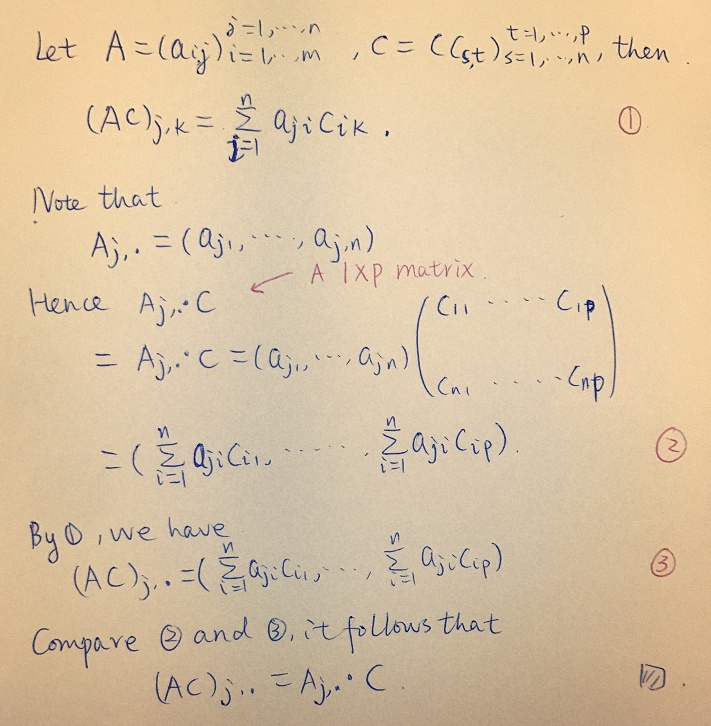 Let A = (aij) j=1,...,n i=1,...,m , C = (Cs,t) t=1,...,p s=1,...,n, then
(AC)j,k = n Σ j=1 aji Cik . ①
Note that
Aj,. = (aj1, ...., aj,n)
A 1×p matrix.
Hence Aj,. C
= Aj,. C = (aj1, ..., ajn) ( C11 ..... C1p
Cn1 ..... Cnp )
= ( n Σ i=1 aji Ci1, ......., n Σ i=1 aji Cip). ②
By ①, we have
(AC)j,. = ( n Σ i=1 aji Ci1, ..., n Σ i=1 aji Cip) ③
Compare ② and ③, it follows that
(AC)j,. = Aj,. C.